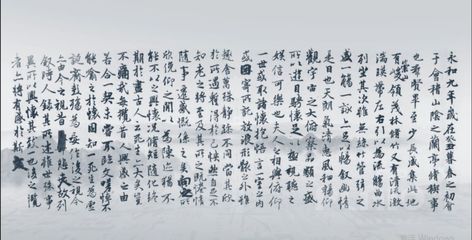 永和九年歲在癸丑暮春之初會
于會稽山陰之蘭亭脩稧事
也群賢畢至少長咸集此地
有崇山峻領茂林脩竹又有清流激
湍暎帶左右引以為流觴曲水
列坐其次雖無絲竹管弦之
盛一觴一詠亦足以暢敘幽情
是日也天朗氣清惠風和暢仰
觀宇宙之大俯察品類之盛
所以遊目騁懷足以極視聽之
娛信可樂也夫人之相與俯仰
一世或取諸懷抱悟言一室之內
或因寄所託放浪形骸之外雖
趣舍萬殊靜躁不同當其欣
於所遇暫得於己怏然自足不
知老之將至及其所之既惓情
隨事遷感慨係之矣向之所
欣俛仰之閒以為陳迹猶不
能不以之興懷況脩短隨化終
期於盡古人云死生亦大矣豈
不痛哉每攬昔人興感之由
若合一契未嘗不臨文嗟悼不
能喻之於懷固知一死生為虛
誕齊彭殤為妄作後之視今
亦由今之視昔悲夫故列
敘時人錄其所述雖世殊事
異所以興懷其致一也後之攬
者亦將有感於斯文
激活 Windows